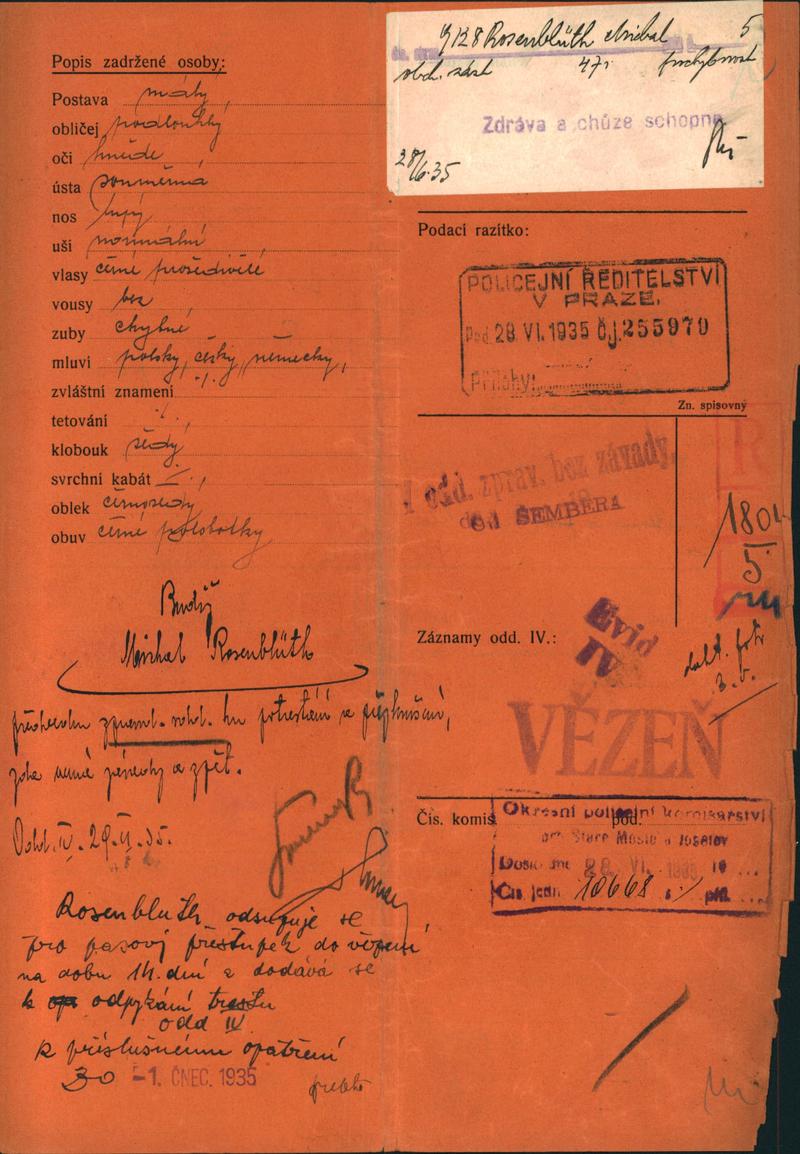 Popis zadržené osoby:
Postava malý,
obličej podlouhlý
oči hnědé
ústa souměrná
nos tupý
uši normální
vlasy černé prošedivělé
vousy bez
zuby chybné
mluví polsky, česky, německy,
zvláštní znamení ./.
tetování
klobouk šedý
svrchní kabát
oblek černošedý
obuv černé polobotky
Budiž
Michal Rosenblüth
předveden
zda nemá peněz a zpět.
Odd. IV. 29.VI.35.
Rosenblüth odsuzuje se
pro pasový přestupek do vězení
na dobu 14. dní a dodává se
k odpykání trestu
odd IV
k příslušnému opatření
30 -1. ČNEC. 1935
9128 Rosenblüth Michal 5
obch. zást 47r pochybnost
Zdráva a chůze schopna
28/6.35
Podací razítko:
POLICEJNÍ ŘEDITELSTVÍ
V PRAZE.
Pod. 28 VI. 1935 Č.J. 255970
Přílohy:
Zn. spisový
V odd. zprav. bez závady.
ŠEMBERA
R
1801
5
Záznamy odd. IV.:
Evid
IV
VĚZEŇ
Čís. komis. pod:
Okresní policejní komisařství
pro Staré Město a Josefov
Došlo dne 28. VI. 1935
Čís. jedn. 10668 příl.